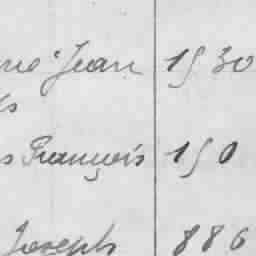 Jean 1530
François 150
Joseph 886